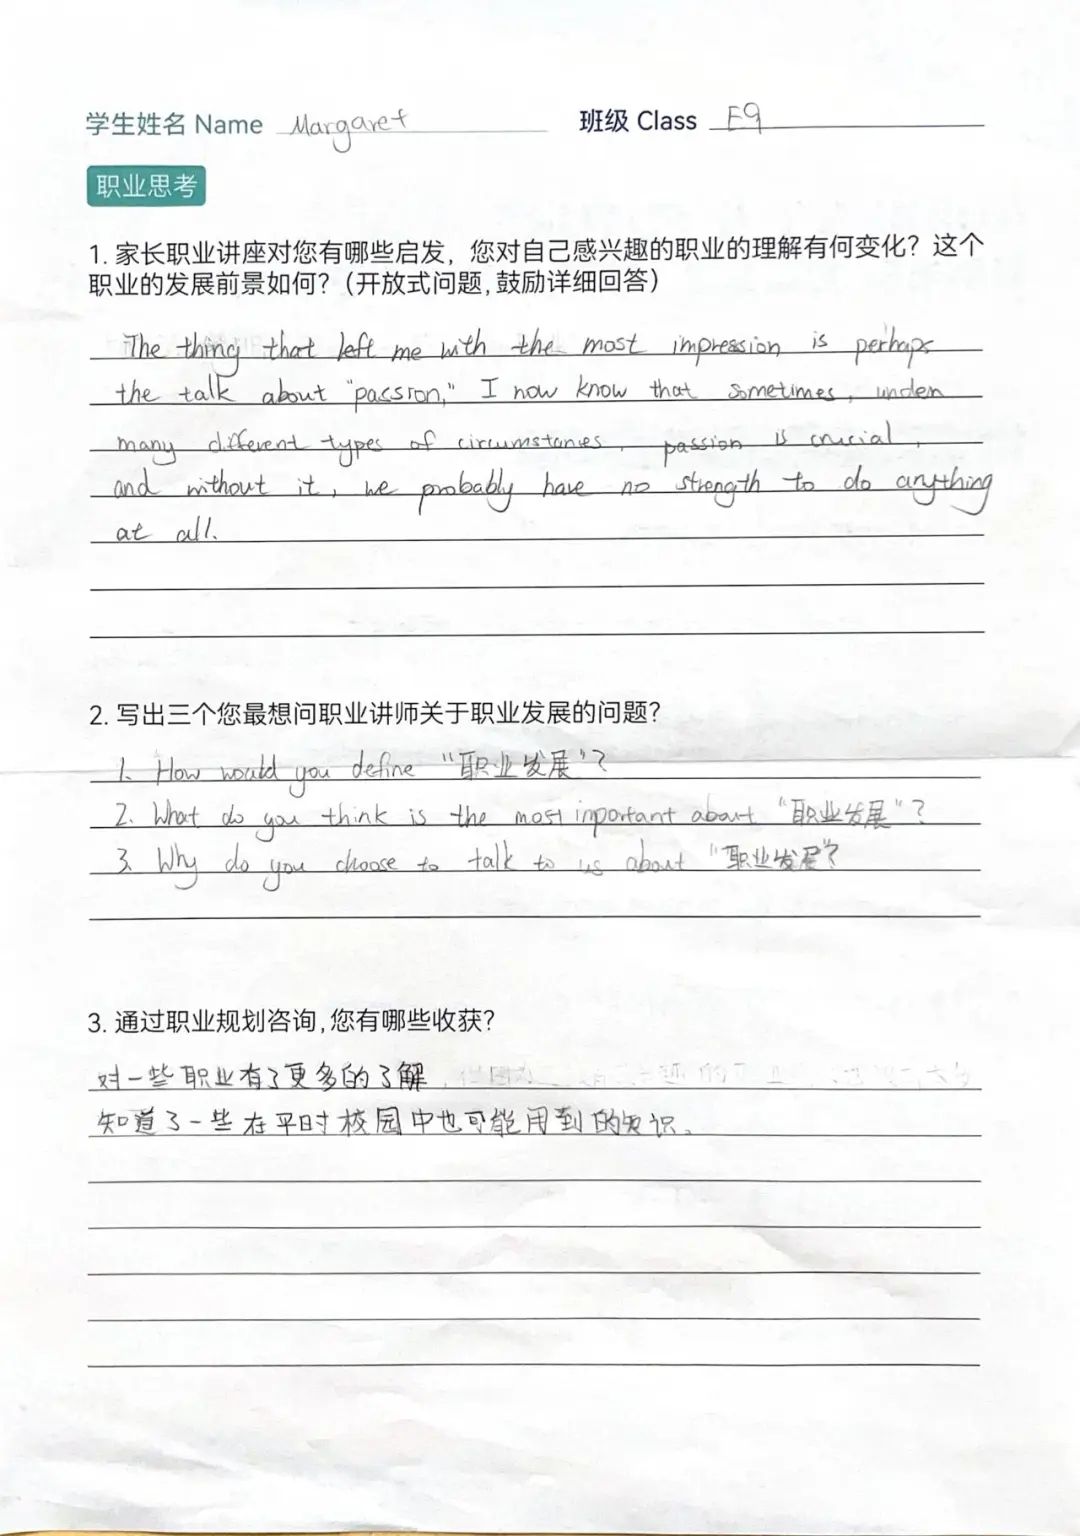 学生姓名 Name Margaret 班级 Class E9
职业思考
1. 家长职业讲座对您有哪些启发，您对自己感兴趣的职业的理解有何变化？这个
职业的发展前景如何？（开放式问题，鼓励详细回答）
The thing that left me with the most impression is perhaps
the talk about "passion," I now know that sometimes, under
many different types of circumstances, passion is crucial,
and without it, we probably have no strength to do anything
at all.
2. 写出三个您最想问职业讲师关于职业发展的问题？
1. How would you define "职业发展"?
2. What do you think is the most inportant about "职业发展"?
3. Why do you choose to talk to us about "职业发展"?
3. 通过职业规划咨询，您有哪些收获？
对一些职业有了更多的了解，
知道了一些在平时校园中也可能用到的知识。